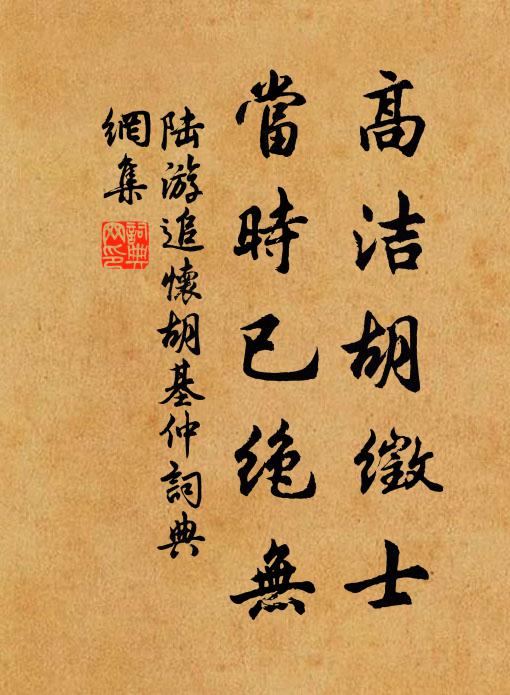 高洁胡徵士
當時已絶無
陆游追懷胡基仲詞典
網集
詞典
网印